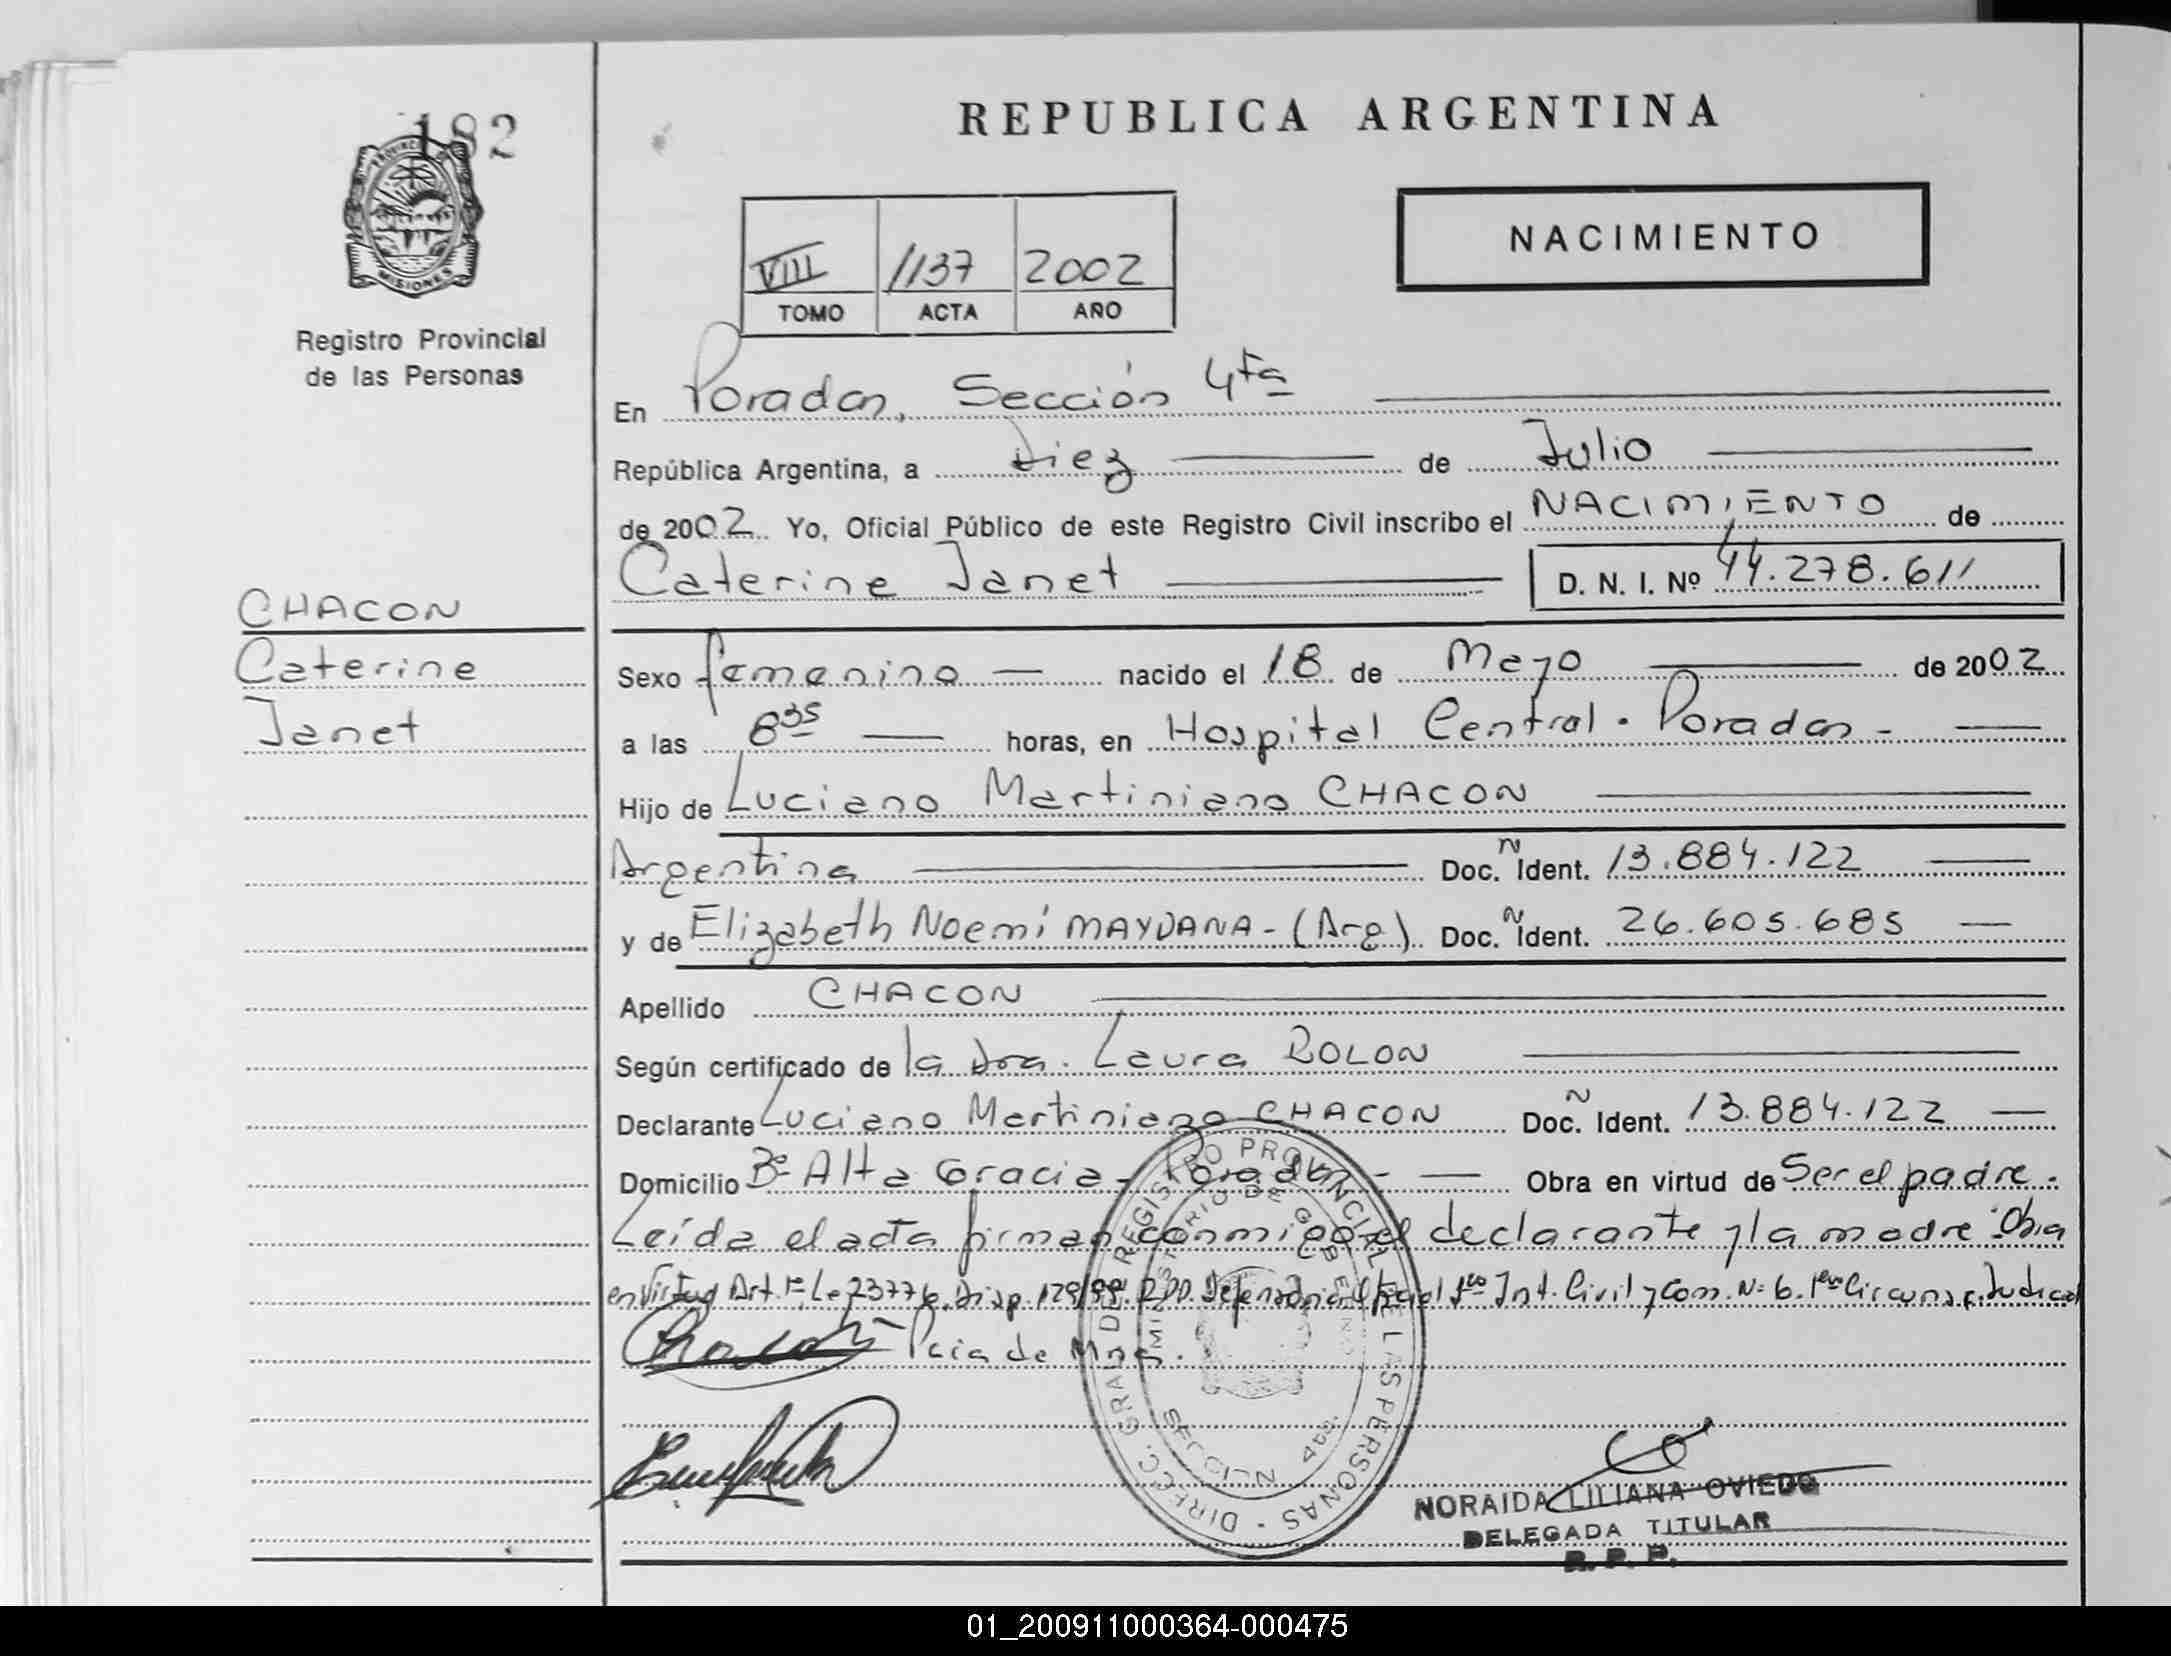 182
PROVINCIA DE MISIONES
Registro Provincial
de las Personas
REPUBLICA ARGENTINA
NACIMIENTO
VIII 1137 2002
TOMO ACTA AÑO
En Posadas, Sección 4ta
República Argentina, a Diez de Julio
de 2002 Yo, Oficial Público de este Registro Civil inscribo el NACIMIENTO de
Caterine Janet D. N. I. Nº 44.278.611
CHACON
Caterine
Janet
Sexo femenino nacido el 18 de Mayo de 2002
a las 8 35 horas, en Hospital Central. Posadas -
Hijo de Luciano Martiniano CHACON
Argentina Doc. N Ident. 13.884.122
y de Elizabeth Noemí MAYDANA - (Arg). Doc. N Ident. 26.605.685
Apellido CHACON
Según certificado de la Dra. Laura ROLON
Declarante Luciano Martiniano CHACON Doc. N Ident. 13.884.122
Domicilio Bº Alta Gracia - Posadas - Obra en virtud de Ser el padre.
Leída el acta firman conmigo el declarante y la madre. Obra
en Virtud Art. 1º Le 23776. Disp. 129/99. Defensoría Oficial 1ro Int. Civil y Com. Nº 6. 1era Circunsc. Judicial
Pcia de Mnes.
DIRECC. GRAL. DEL REGISTRO PROVINCIAL DE LAS PERSONAS -
MINISTERIO DE GOBIERNO
SECCION 4ta.
NORAIDA LILIANA OVIEDO
DELEGADA TITULAR
R. P. P.
01_200911000364-000475